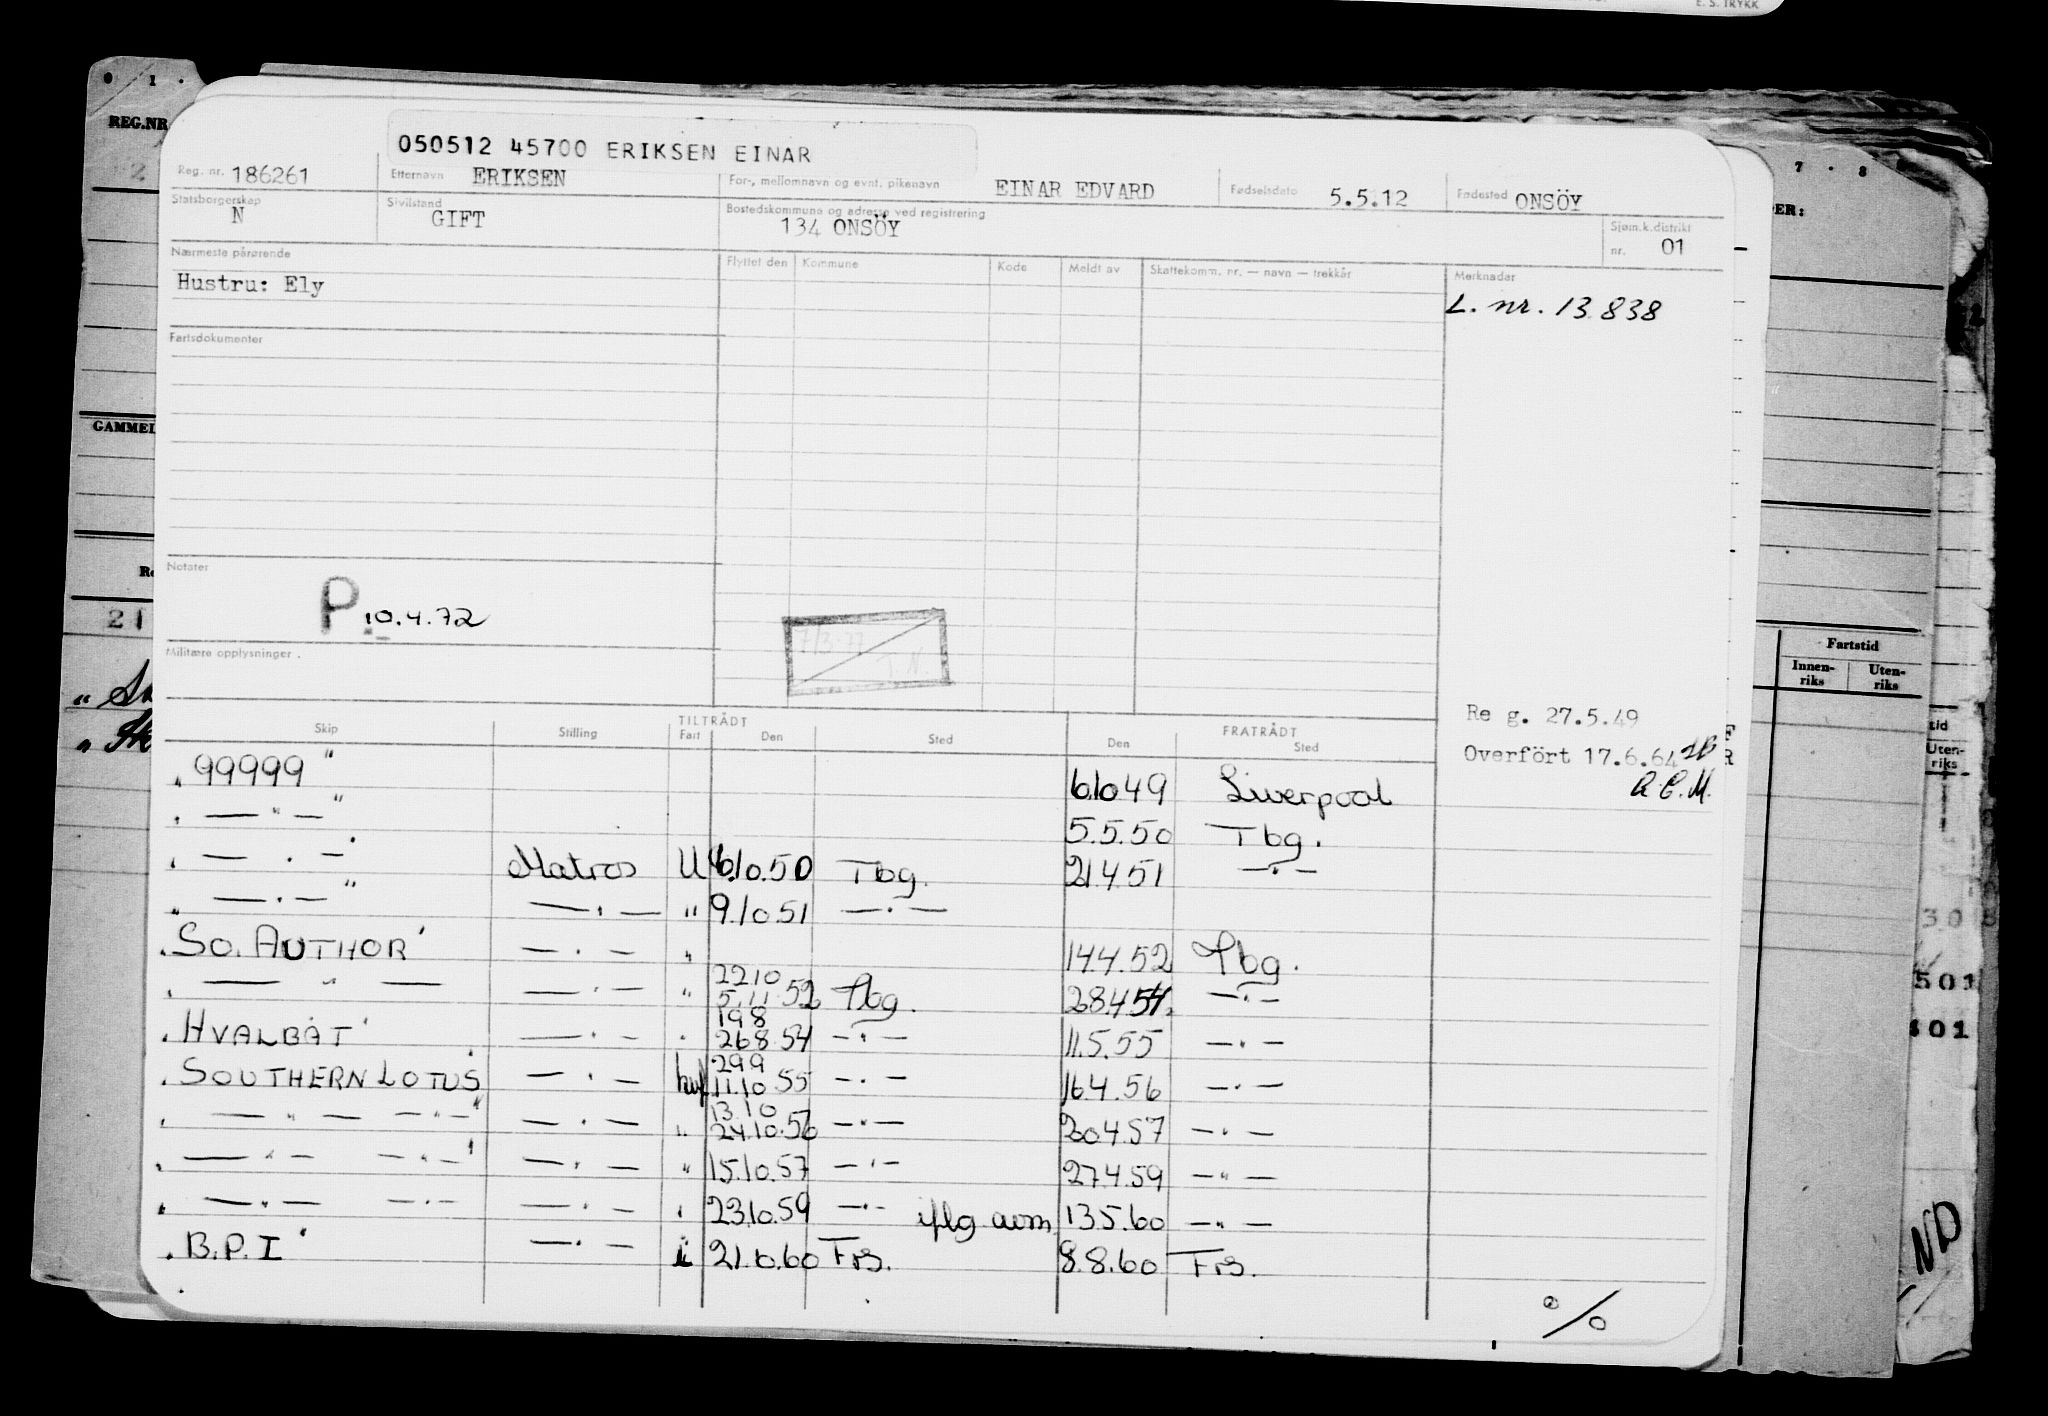 E. S. TRYKK
0 1 .
REG.NR
050512 45700 ERIKSEN EINAR
Reg. nr. 186261 Etternavn ERIKSEN For-, mellomnavn og evnt. pikenavn EINAR EDVARD Fødselsdato 5.5.12 Fødested ONSÖY
Statsborgerskap N Sivilstand GIFT Bostedskommune og adresse ved registrering 134 ONSÖY Sjøm.k.distrikt nr. 01
Nærmeste pårørende Flyttet den Kommune Kode Meldt av Skattekomm. nr. — navn — trekkår Merknader
Hustru: Ely
L. nr. 13838
Fartsdokumenter
Notater
P 10.4.72
7/3-77
T.N.
Militære opplysninger .
Re g. 27.5.49
Overfört 17.6.64
R.E.M.
TILTRÅDT FRATRÅDT
Skip Stilling Fart Den Sted Den Sted
„ 99999 " 6.10 49 Liverpool
„ — " — " 5.5.50 Tbg.
„ — . — " Matros U 6.10.50 Tbg. 21.4 51 — " —
„ — . — " — . — " 9.10 51 — . —
„ SO. AUTHOR " — . — " 14.4.52 Tbg.
„ — " — — . — " 22 10
5.11 52 Tbg. 28.4 54 — . —
„ HVALBÅT " — . — " 19 8
26 8 54 — . — 11.5.55 — . —
„ SOUTHERN LOTUS " — . — hvf 29 9
11.10 55 — . — 16 4.56 — . —
„ — " — — " — " — . — " 13 10
24.10.56 — . — 20 4 57 — . —
„ — " — — " — " — . — " 15.10.57 — . — 27.4 59 — " —
„ — " — — . — — . — " 23.10.59 — . — iflg avm. 13.5.60 — " —
„ B.P. I " — . — i 21.6.60 Frs. 8.8.60 Frs.
%
GAMMEL
21
7 . 8
DER:
Fartstid
Innen-
riks
Uten-
riks
tid
Uten-
riks
30 8
501
401
ND